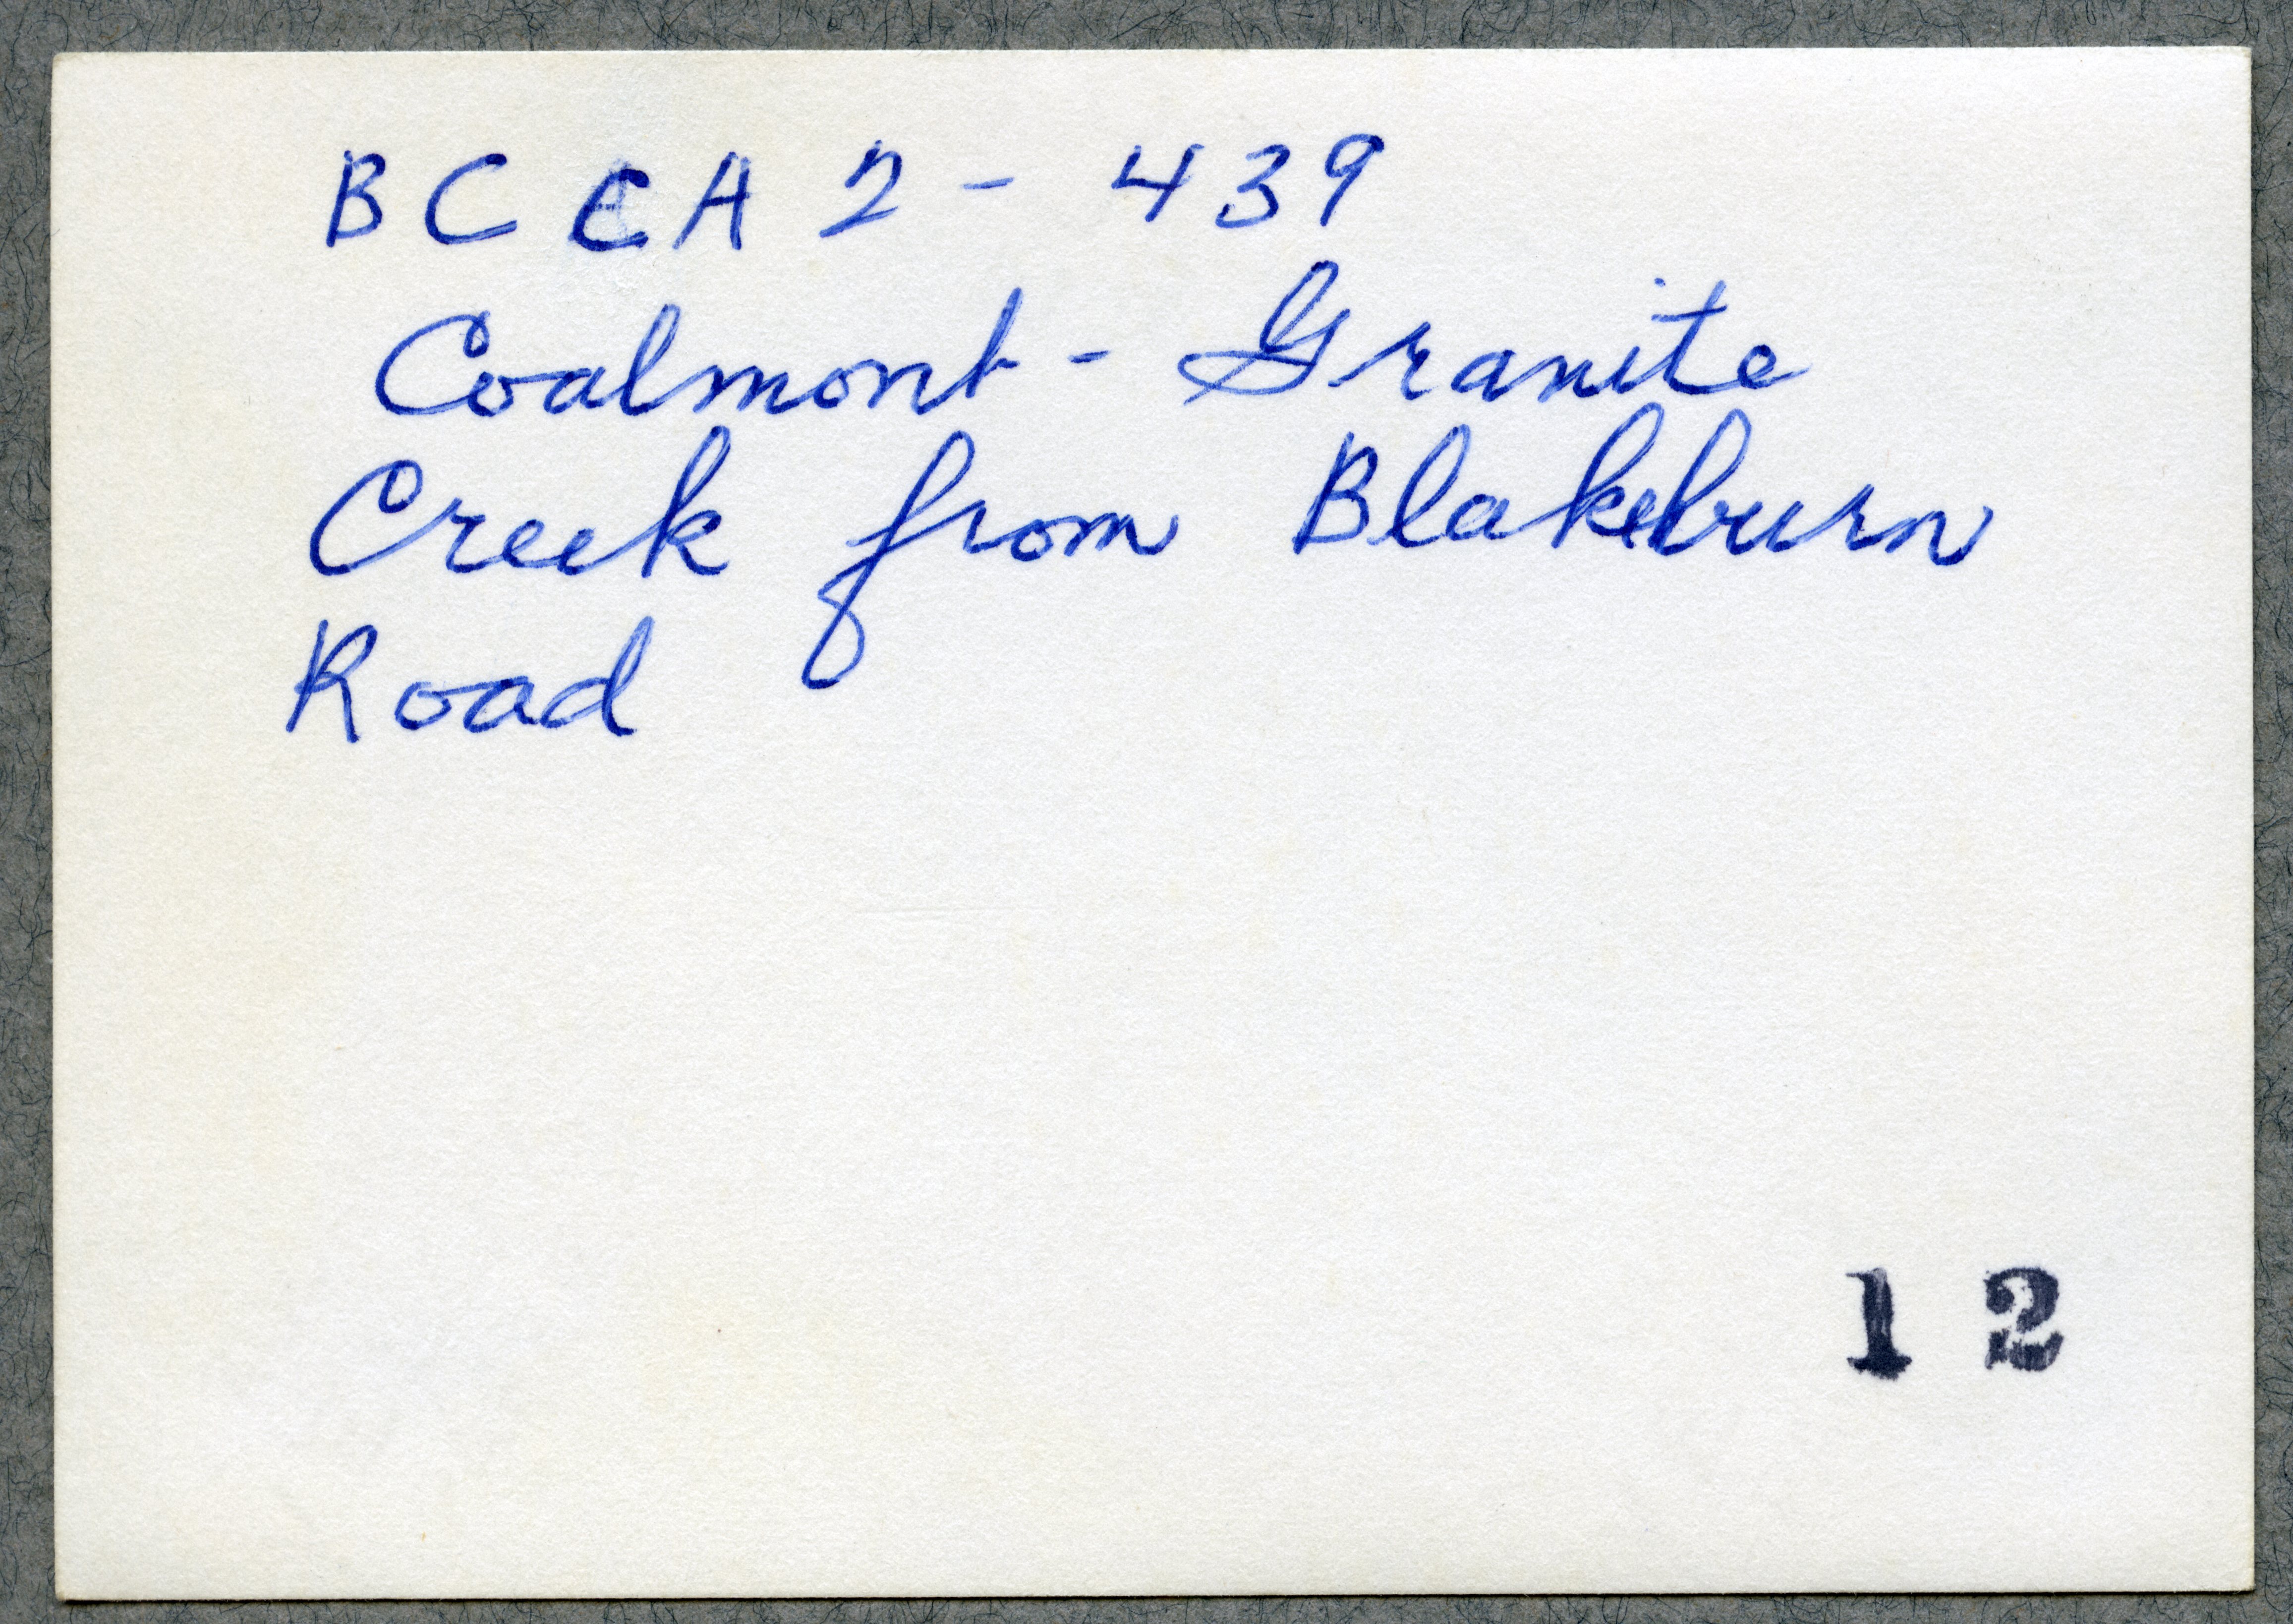 BCCA2-439
Coalmont - Granite
Creek from Blakeburn
Road
12